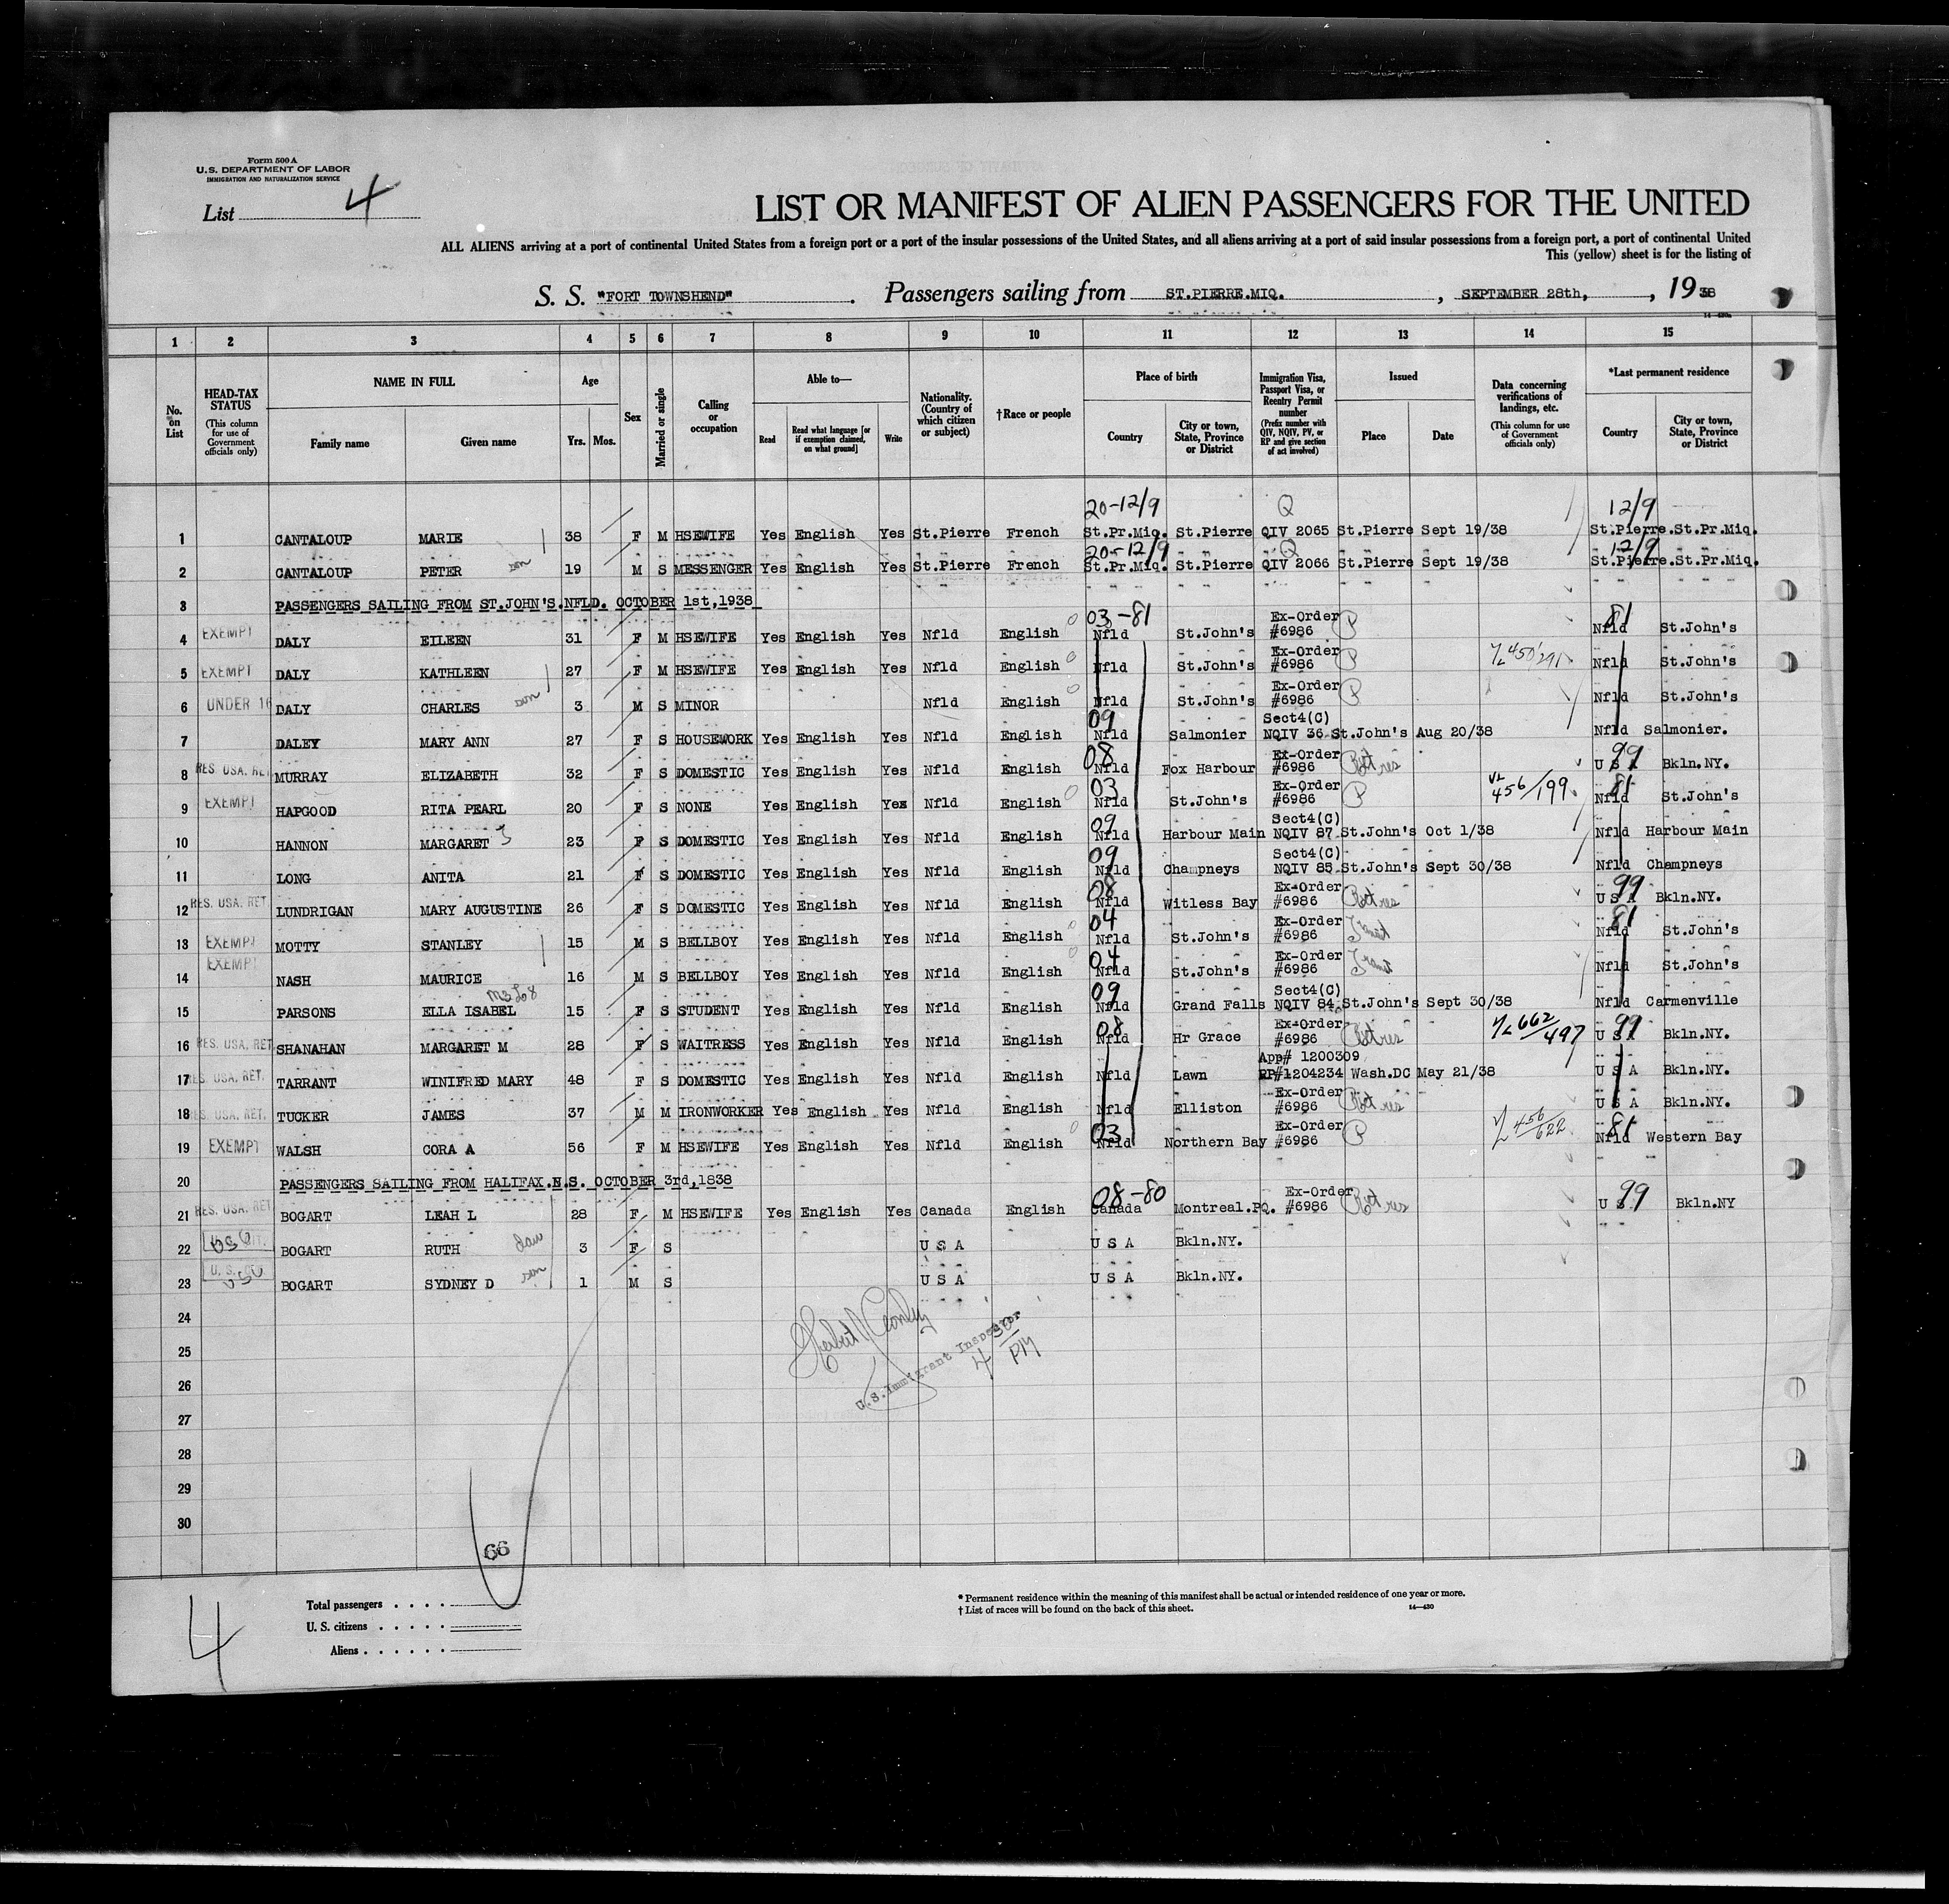 Form 500 A
U.S. DEPARTMENT OF LABOR
IMMIGRATION AND NATURALIZATION SERVICE
List 4
LIST OR MANIFEST OF ALIEN PASSENGERS FOR THE UNITED
ALL ALIENS arriving at a port of continental United States from a foreign port or a port of the insular possessions of the United States, and all aliens arriving at a port of said insular possessions from a foreign port, a port of continental United
This (yellow) sheet is for the listing of
S. S. "FORT TOWNSHEND". Passengers sailing from ST.PIERRE.MIQ., SEPTEMBER 28th,, 1938
14—430
1 2 3 4 5 6 7 8 9 10 11 12 13 14 15
No. on List
HEAD-TAX STATUS (This column for use of Government officials only)
NAME IN FULL Family name Given name
Age Yrs. Mos.
Sex
Married or single
Calling or occupation
Able to— Read Read what language [or if exemption claimed, on what ground] Write
Nationality. (Country of which citizen or subject)
†Race or people
Place of birth Country City or town, State, Province or District
Immigration Visa, Passport Visa, or Reentry Permit number (Prefix number with QIV, NQIV, PV, or RP and give section of act involved)
Issued Place Date
Data concerning verifications of landings, etc. (This column for use of Government officials only)
*Last permanent residence Country City or town, State, Province or District
20-12/9 Q 12/9
1 CANTALOUP MARIE 38 F M HSEWIFE Yes English Yes St.Pierre French St.Pr.Miq. St.Pierre QIV 2065 St.Pierre Sept 19/38 St.Pierre.St.Pr.Miq.
20-12/9 Q 12/9
2 CANTALOUP PETER son 19 M S MESSENGER Yes English Yes St.Pierre French St.Pr.Miq. St.Pierre QIV 2066 St.Pierre Sept 19/38 St.Pierre.St.Pr.Miq.
3 PASSENGERS SAILING FROM ST.JOHN'S.NFLD. OCTOBER 1st,1938
03-81 Ex-Order 81
4 EXEMPT DALY EILEEN 31 F M HSEWIFE Yes English Yes Nfld English Nfld St.John's #6986 P Nfld St.John's
Ex-Order
5 EXEMPT DALY KATHLEEN 27 F M HSEWIFE Yes English Yes Nfld English Nfld St.John's #6986 P Nfld St.John's
Ex-Order
6 UNDER 16 DALY CHARLES son 3 M S MINOR Nfld English Nfld St.John's #6986 P Nfld St.John's
09 Sect4(C)
7 DALEY MARY ANN 27 F S HOUSEWORK Yes English Yes Nfld English Nfld Salmonier NQIV 36 St.John's Aug 20/38 Nfld Salmonier.
08 Ex-Order 99
8 RES. USA. RET MURRAY ELIZABETH 32 F S DOMESTIC Yes English Yes Nfld English Nfld Fox Harbour #6986 Ret res U S A Bkln.NY.
03 Ex-Order 456/199 81
9 EXEMPT HAPGOOD RITA PEARL 20 F S NONE Yes English Yes Nfld English Nfld St.John's #6986 P Nfld St.John's
09 Sect4(C)
10 HANNON MARGARET J 23 F S DOMESTIC Yes English Yes Nfld English Nfld Harbour Main NQIV 87 St.John's Oct 1/38 Nfld Harbour Main
09 Sect4(C)
11 LONG ANITA 21 F S DOMESTIC Yes English Yes Nfld English Nfld Champneys NQIV 85 St.John's Sept 30/38 Nfld Champneys
08 Ex-Order 99
12 RES. USA. RET. LUNDRIGAN MARY AUGUSTINE 26 F S DOMESTIC Yes English Yes Nfld English Nfld Witless Bay #6986 Ret res U S A Bkln.NY.
04 Ex-Order 81
13 EXEMPT MOTTY STANLEY 15 M S BELLBOY Yes English Yes Nfld English Nfld St.John's #6986 Transit Nfld St.John's
04 Ex-Order
14 EXEMPT NASH MAURICE 16 M S BELLBOY Yes English Yes Nfld English Nfld St.John's #6986 Nfld St.John's
09 Sect4(C)
15 PARSONS ELLA ISABEL 15 F S STUDENT Yes English Yes Nfld English Nfld Grand Falls NQIV 84 St.John's Sept 30/38 Nfld Carmenville
08 Ex-Order 662/497 99
16 RES. USA. RET SHANAHAN MARGARET M 28 F S WAITRESS Yes English Yes Nfld English Nfld Hr Grace #6986 Ret res U S A Bkln.NY.
App# 1200309
17 RES. USA. RET. TARRANT WINIFRED MARY 48 F S DOMESTIC Yes English Yes Nfld English Nfld Lawn RP#1204234 Wash.DC May 21/38 U S A Bkln.NY.
Ex-Order
18 RES. USA. RET. TUCKER JAMES 37 M M IRONWORKER Yes English Yes Nfld English Nfld Elliston #6986 Ret res U S A Bkln.NY.
03 Ex-Order 456/622 81
19 EXEMPT WALSH CORA A 56 F M HSEWIFE Yes English Yes Nfld English Nfld Northern Bay #6986 P Nfld Western Bay
20 PASSENGERS SAILING FROM HALIFAX.N.S. OCTOBER 3rd,1838
08-80 Ex-Order 99
21 RES. USA. RET. BOGART LEAH L 28 F M HSEWIFE Yes English Yes Canada English Canada Montreal.PQ. #6986 Ret res U S A Bkln.NY
22 BOGART RUTH dau 3 F S U S A U S A Bkln.NY.
23 BOGART SYDNEY D son 1 M S U S A U S A Bkln.NY.
24
25
26
27
28
29
30
U.S. Immigrant Inspector
4 30 PM
66
4
Total passengers
U. S. citizens
Aliens
* Permanent residence within the meaning of this manifest shall be actual or intended residence of one year or more.
† List of races will be found on the back of this sheet.
14—430